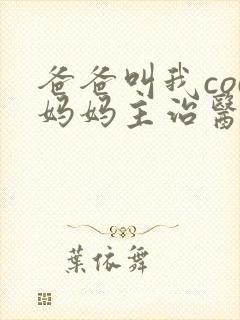 爸爸叫我co
妈妈主治醫
葉依舞